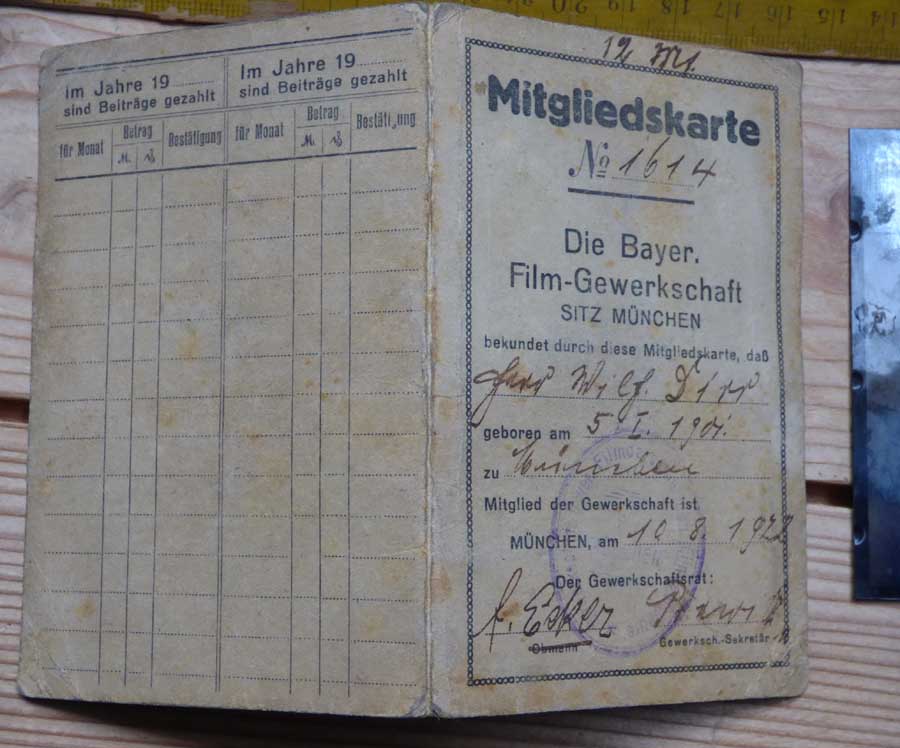 Im Jahre 19
sind Beiträge gezahlt
für Monat
Betrag
M.
₰
Bestätigung
Im Jahre 19
sind Beiträge gezahlt
für Monat
Betrag
M.
₰
Bestätigung
12 M
Mitgliedskarte
No 1614
Die Bayer.
Film-Gewerkschaft
SITZ MÜNCHEN
bekundet durch diese Mitgliedskarte, daß
Herr Wilh.
geboren am 5. I. 1901.
zu München
Mitglied der Gewerkschaft ist
MÜNCHEN, am 10. 8. 1922
Der Gewerkschaftsrat:
Obmann
Gewerksch.-Sekretär
14 15 16 17 18 20